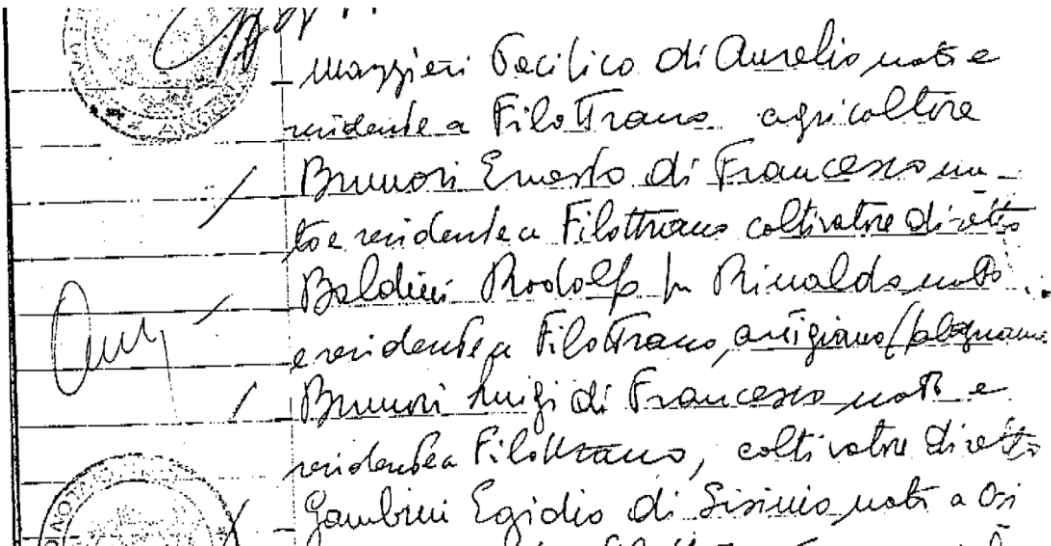 - Maggieri Pacifico di Aurelio nato e
residente a Filottrano agricoltore
/ Brunori Ernesto di Francesco na-
to e residente a Filottrano coltivatore diretto
/ Baldini Rodolfo fu Rinaldo nato
e residente a Filottrano, artigiano (falegname
/ Brunori Luigi di Francesco nato e
residente a Filottrano, coltivatore diretto
/ - Gambini Egidio di Sisinio nato a Osi